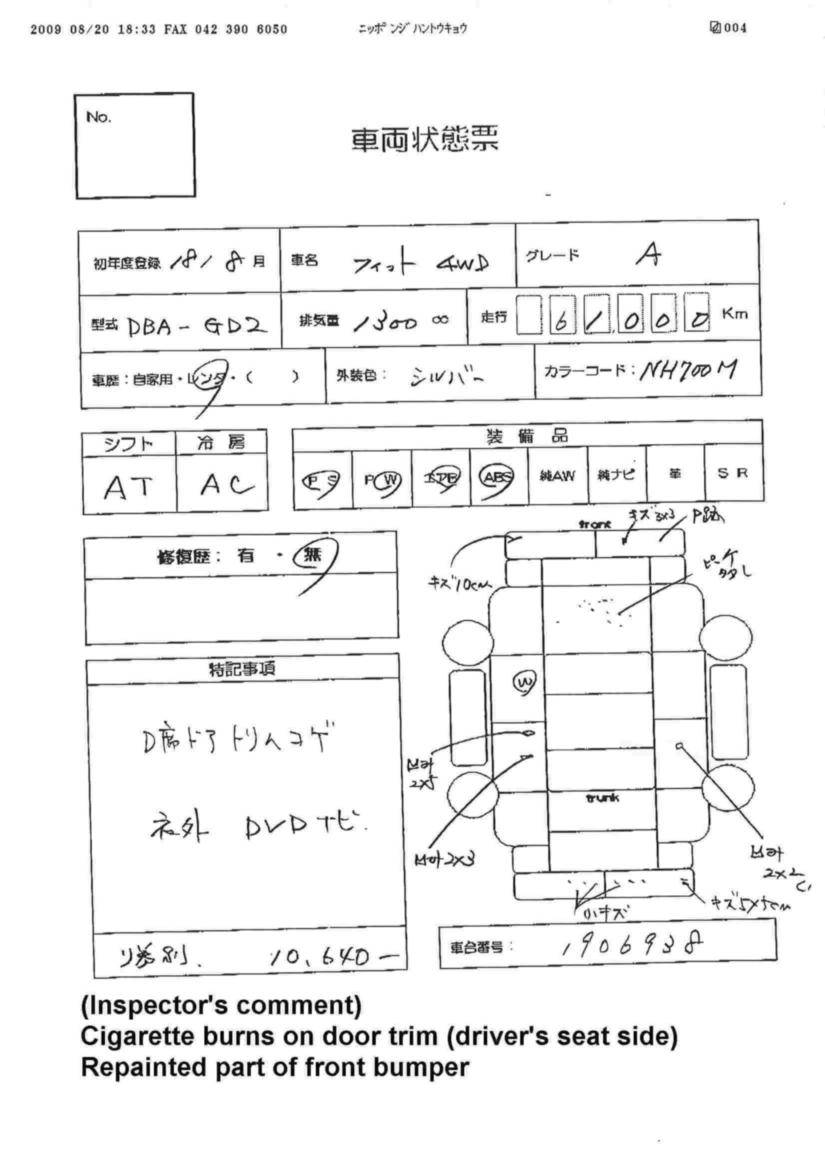 2009 08/20 18:33 FAX 042 390 6050 ニッポンジハントウキョウ 004
No.
車両状態票
初年度登録 18/8月 車名 フィット 4WD グレード A
型式 DBA-GD2 排気量 1300 cc 走行 61,000 Km
車歴:自家用・レンタ・( ) 外装色: シルバー カラーコード:NH700M
シフト 冷房 装備品
AT AC PS PW エアB ABS 純AW 純ナビ 革 SR
修復歴: 有 ・ 無
front キズ3x3
キズ10cm
特記事項
W
D席ドアトリムコゲ
2x5
trunk
社外 DVDナビ.
2x3
2x2
キズ5x5cm
小キズ
リ券別. 10,640-
車台番号: 1906938
(Inspector's comment)
Cigarette burns on door trim (driver's seat side)
Repainted part of front bumper